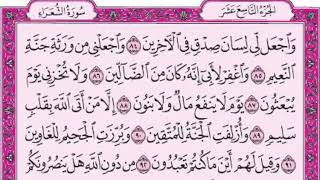 الجزء التاسع عشر سورة الشعراء
وَاجْعَل لِّى لِسَانَ صِدْقٍ فِى الْآخِرِينَ ٨٤ وَاجْعَلْنِى مِن وَرَثَةِ جَنَّةِ
النَّعِيمِ ٨٥ وَاغْفِرْ لِأَبِى إِنَّهُ كَانَ مِنَ الضَّالِّينَ ٨٦ وَلَا تُخْزِنِى يَوْمَ
يُبْعَثُونَ ٨٧ يَوْمَ لَا يَنفَعُ مَالٌ وَلَا بَنُونَ ٨٨ إِلَّا مَنْ أَتَى اللَّهَ بِقَلْبٍ
سَلِيمٍ ٨٩ وَأُزْلِفَتِ الْجَنَّةُ لِلْمُتَّقِينَ ٩٠ وَبُرِّزَتِ الْجَحِيمُ لِلْغَاوِينَ
٩١ وَقِيلَ لَهُمْ أَيْنَ مَا كُنتُمْ تَعْبُدُونَ ٩٢ مِن دُونِ اللَّهِ هَلْ يَنصُرُونَكُمْ